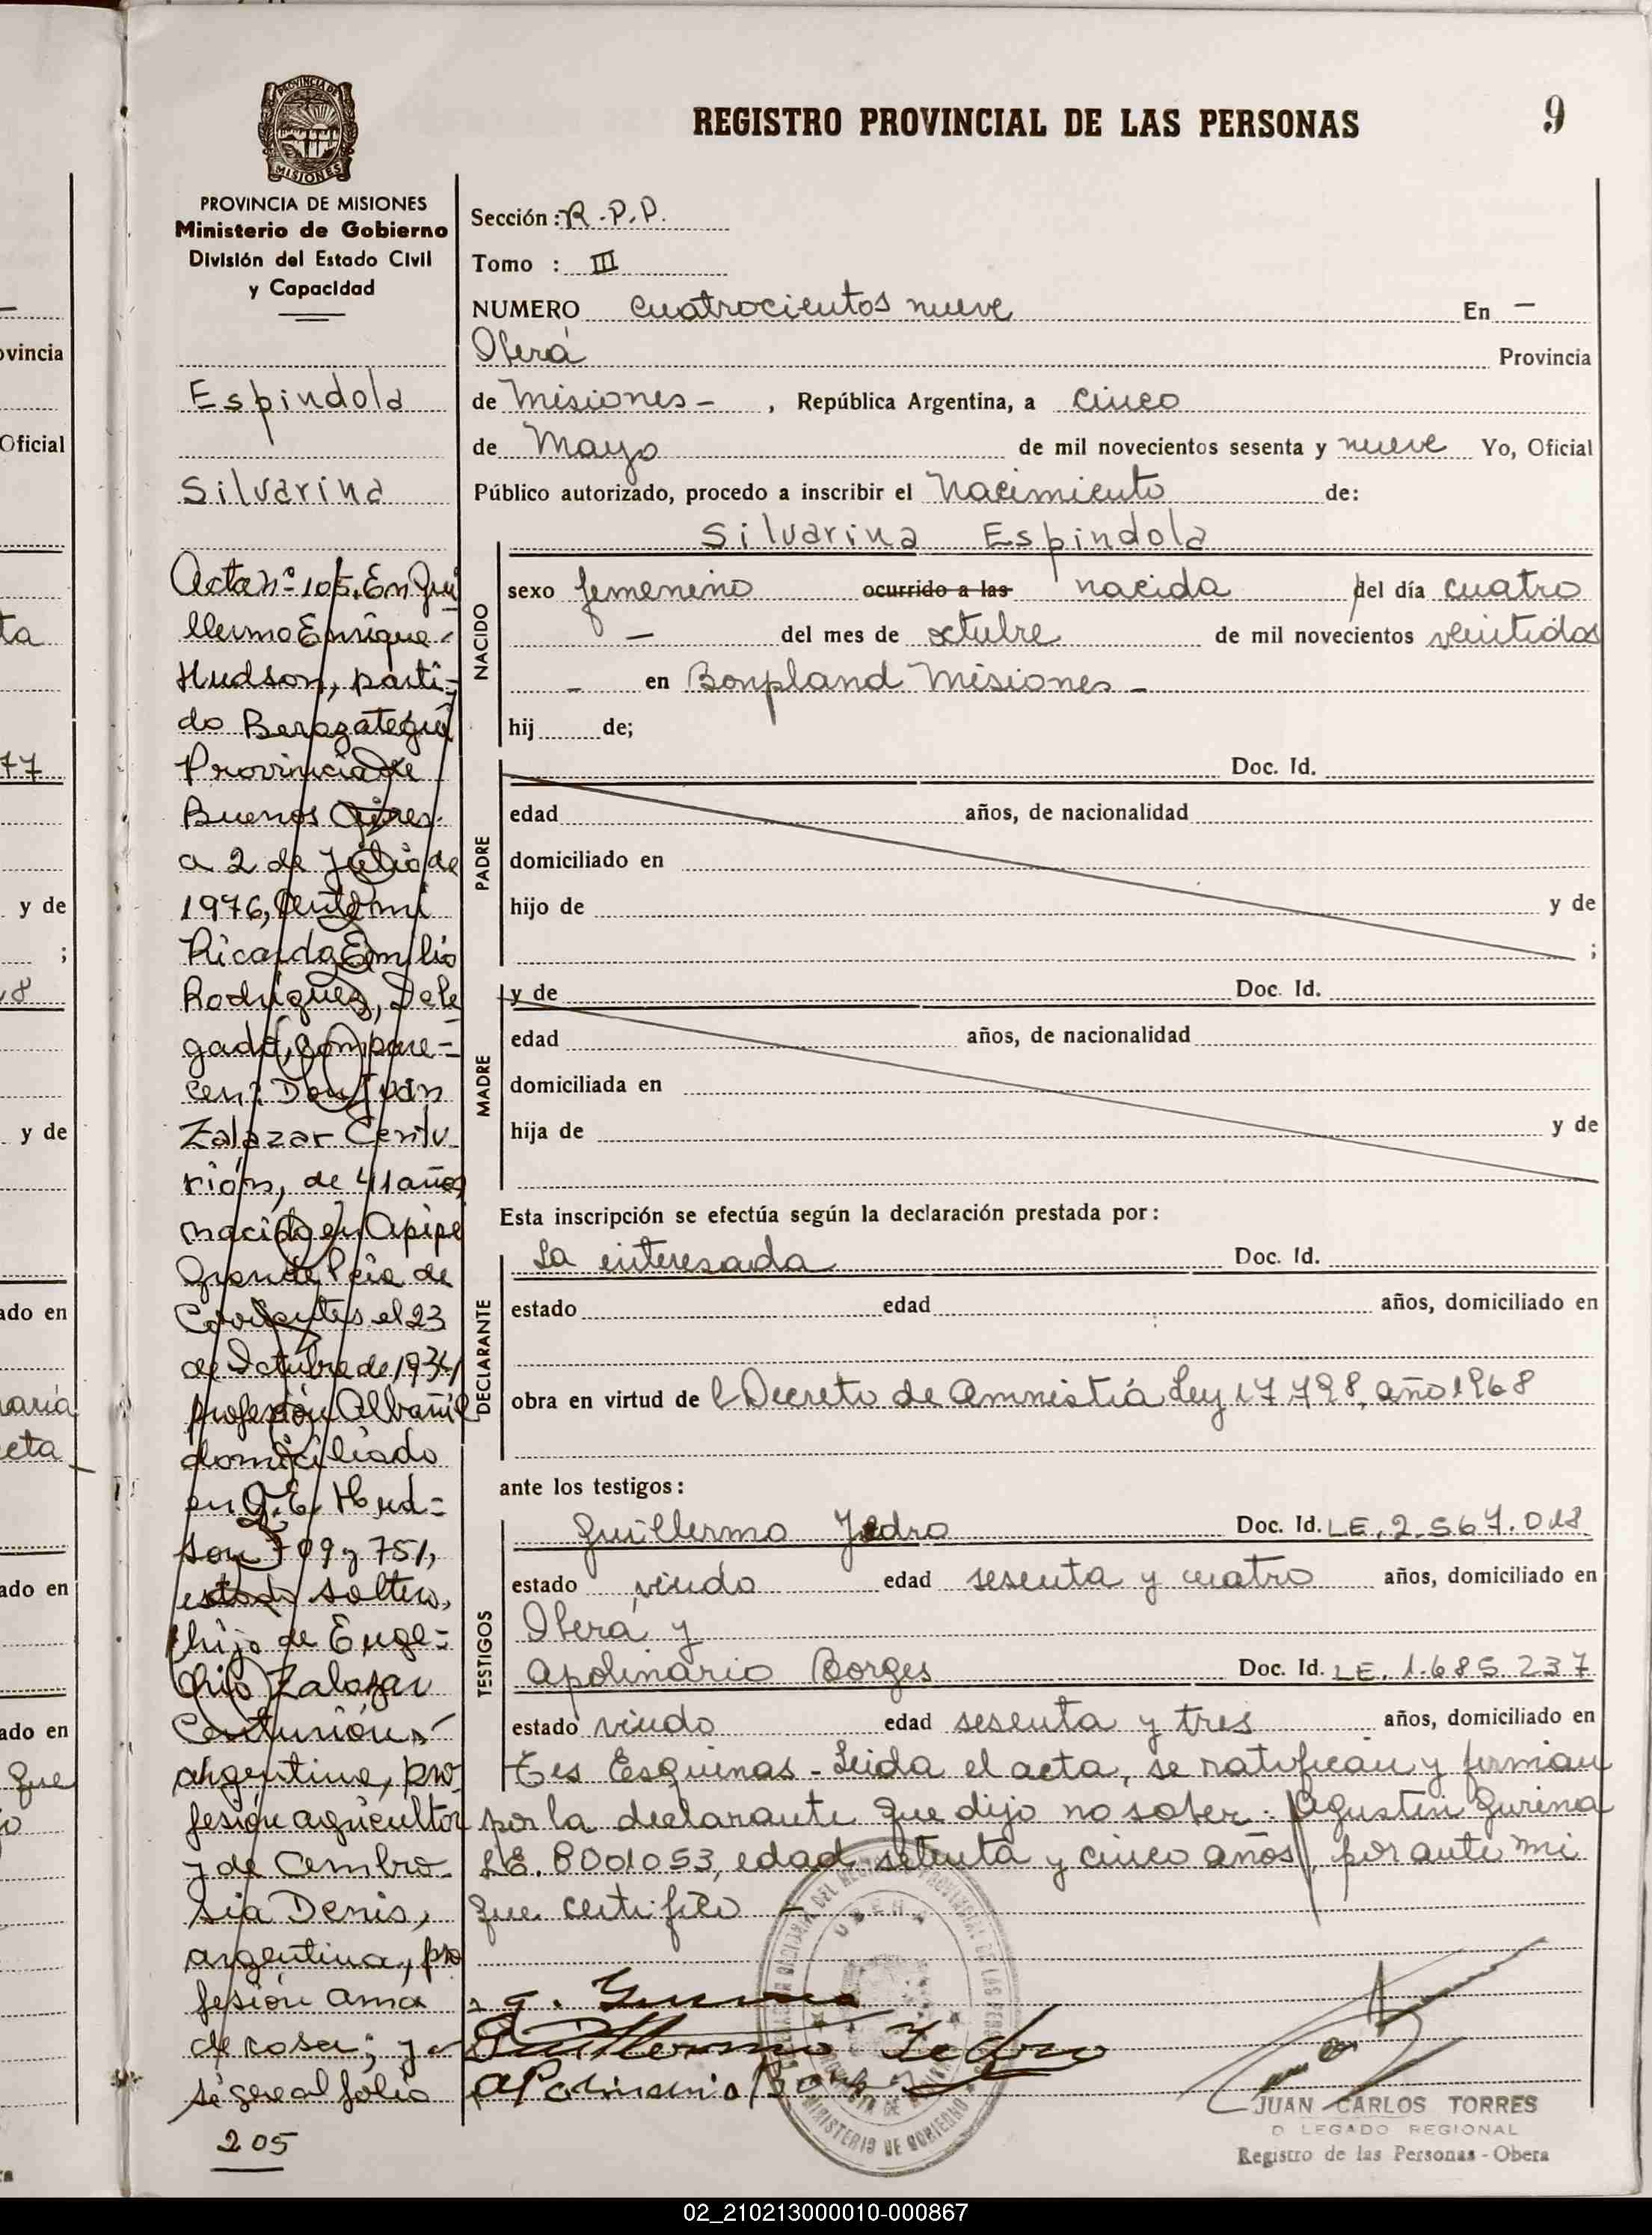 REGISTRO PROVINCIAL DE LAS PERSONAS
9
PROVINCIA DE
MISIONES
PROVINCIA DE MISIONES
Ministerio de Gobierno
División del Estado Civil
y Capacidad
Espindola
Silvarina
Acta nº 105. En Gui
llermo Enrique
Hudson, parti-
do Berazategui
Provincia de
Buenos Aires
a 2 de Julio de
1976, Ante mi
Ricardo Emilio
Rodriguez, Dele
gado, compare-
cen: Don Juan
Zalazar Centu
rión, de 41 años
nacido en Apipe
Grande Pcia de
Corrientes el 23
de Octubre de 1934
profesión Albañil
domiciliado
en G.E. Hud-
son 709 y 751,
estado soltero,
hijo de Euge-
nio Zalazar
Centurión
argentino, pro
fesión agricultor
y de Ambro
sia Denis,
argentina, pro
fesión ama
de casa; y
sigue al folio
205
Sección: R.P.P.
Tomo : III
NUMERO cuatrocientos nueve En —
Oberá Provincia
de Misiones - , República Argentina, a cinco
de Mayo de mil novecientos sesenta y nueve Yo, Oficial
Público autorizado, procedo a inscribir el Nacimiento de:
Silvarina Espindola
NACIDO
sexo femenino ocurrido a las nacida del día cuatro
— del mes de octubre de mil novecientos veintidos
- en Bonpland Misiones -
hij de;
PADRE
Doc. Id.
edad años, de nacionalidad
domiciliado en
hijo de y de
;
MADRE
y de Doc. Id.
edad años, de nacionalidad
domiciliada en
hija de y de
Esta inscripción se efectúa según la declaración prestada por:
DECLARANTE
La interesada Doc. Id.
estado edad años, domiciliado en
obra en virtud de l Decreto de Amnistía Ley 17.798, año 1968
ante los testigos:
TESTIGOS
Guillermo Jedro Doc. Id. LE. 2.567.018
estado viudo edad sesenta y cuatro años, domiciliado en
Oberá y
Apolinario Borges Doc. Id. LE. 1.685.237
estado viudo edad sesenta y tres años, domiciliado en
Tes Esquinas - Leida el acta, se ratifican y firman
por la declarante que dijo no saber: Agustin Gurina
LE. 8001053, edad setenta y cinco años, por ante mi
que certifico -
Guillermo Jedro
JUAN CARLOS TORRES
D LEGADO REGIONAL
Registro de las Personas - Obera
MINISTERIO DE GOBIERNO
ovincia
Oficial
ta
77
y de
;
y de
ado en
ado en
ado en
que
02_210213000010-000867